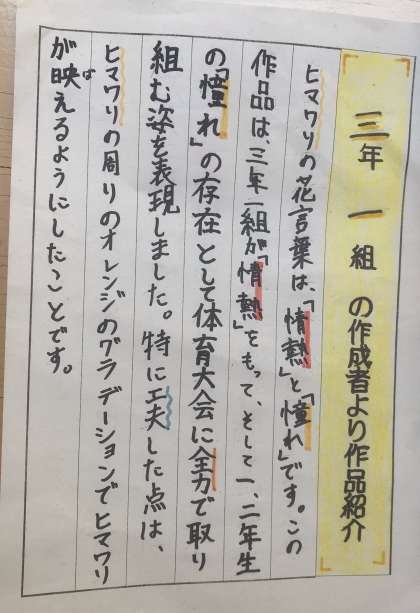 三年 一組 の作成者より作品紹介
ヒマワリの花言葉は、「情熱」と「憧れ」です。この
作品は、三年一組が「情熱」をもって、そして一、二年生
の「憧れ」の存在として体育大会に全力で取り
組む姿を表現しました。特に工夫した点は、
ヒマワリの周りのオレンジのグラデーションでヒマワリ
が映えるようにしたことです。